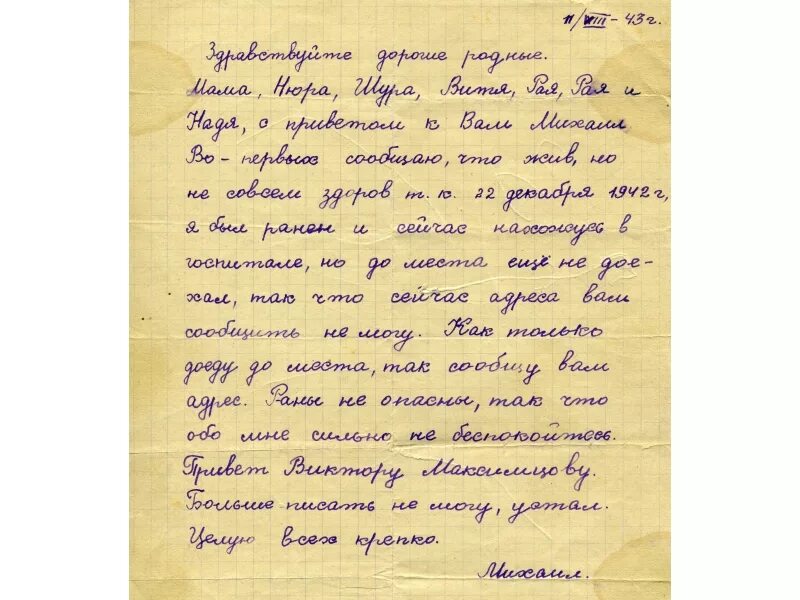 11/VIII - 43 г.
Здравствуйте дорогие родные.
Мама, Нюра, Шура, Витя, Рая, Рая и
Надя, с приветом к Вам Михаил
Во-первых сообщаю, что жив, но
не совсем здоров т. к. 22 декабря 1942 г,
я был ранен и сейчас нахожусь в
госпитале, но до места ещё не дое-
хал, так что сейчас адреса вам
сообщить не могу. Как только
доеду до места, так сообщу вам
адрес. Раны не опасны, так что
обо мне сильно не беспокойтесь.
Привет Виктору Максимцову.
Больше писать не могу, устал.
Целую всех крепко.
Михаил.